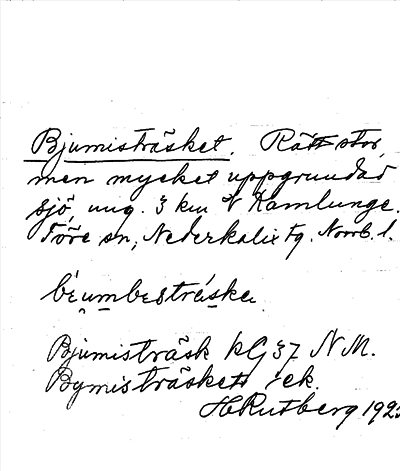 Bjumisträsket. Rätt stor,
men mycket uppgrundad
sjö, ung. 3 km N Kamlunge.
Töre sn, Nederkalix tg. Norrb. l.
béumbestráskɛ
Bjumisträsk kG 37 N M.
Bymisträsket ek.
HRutberg 192